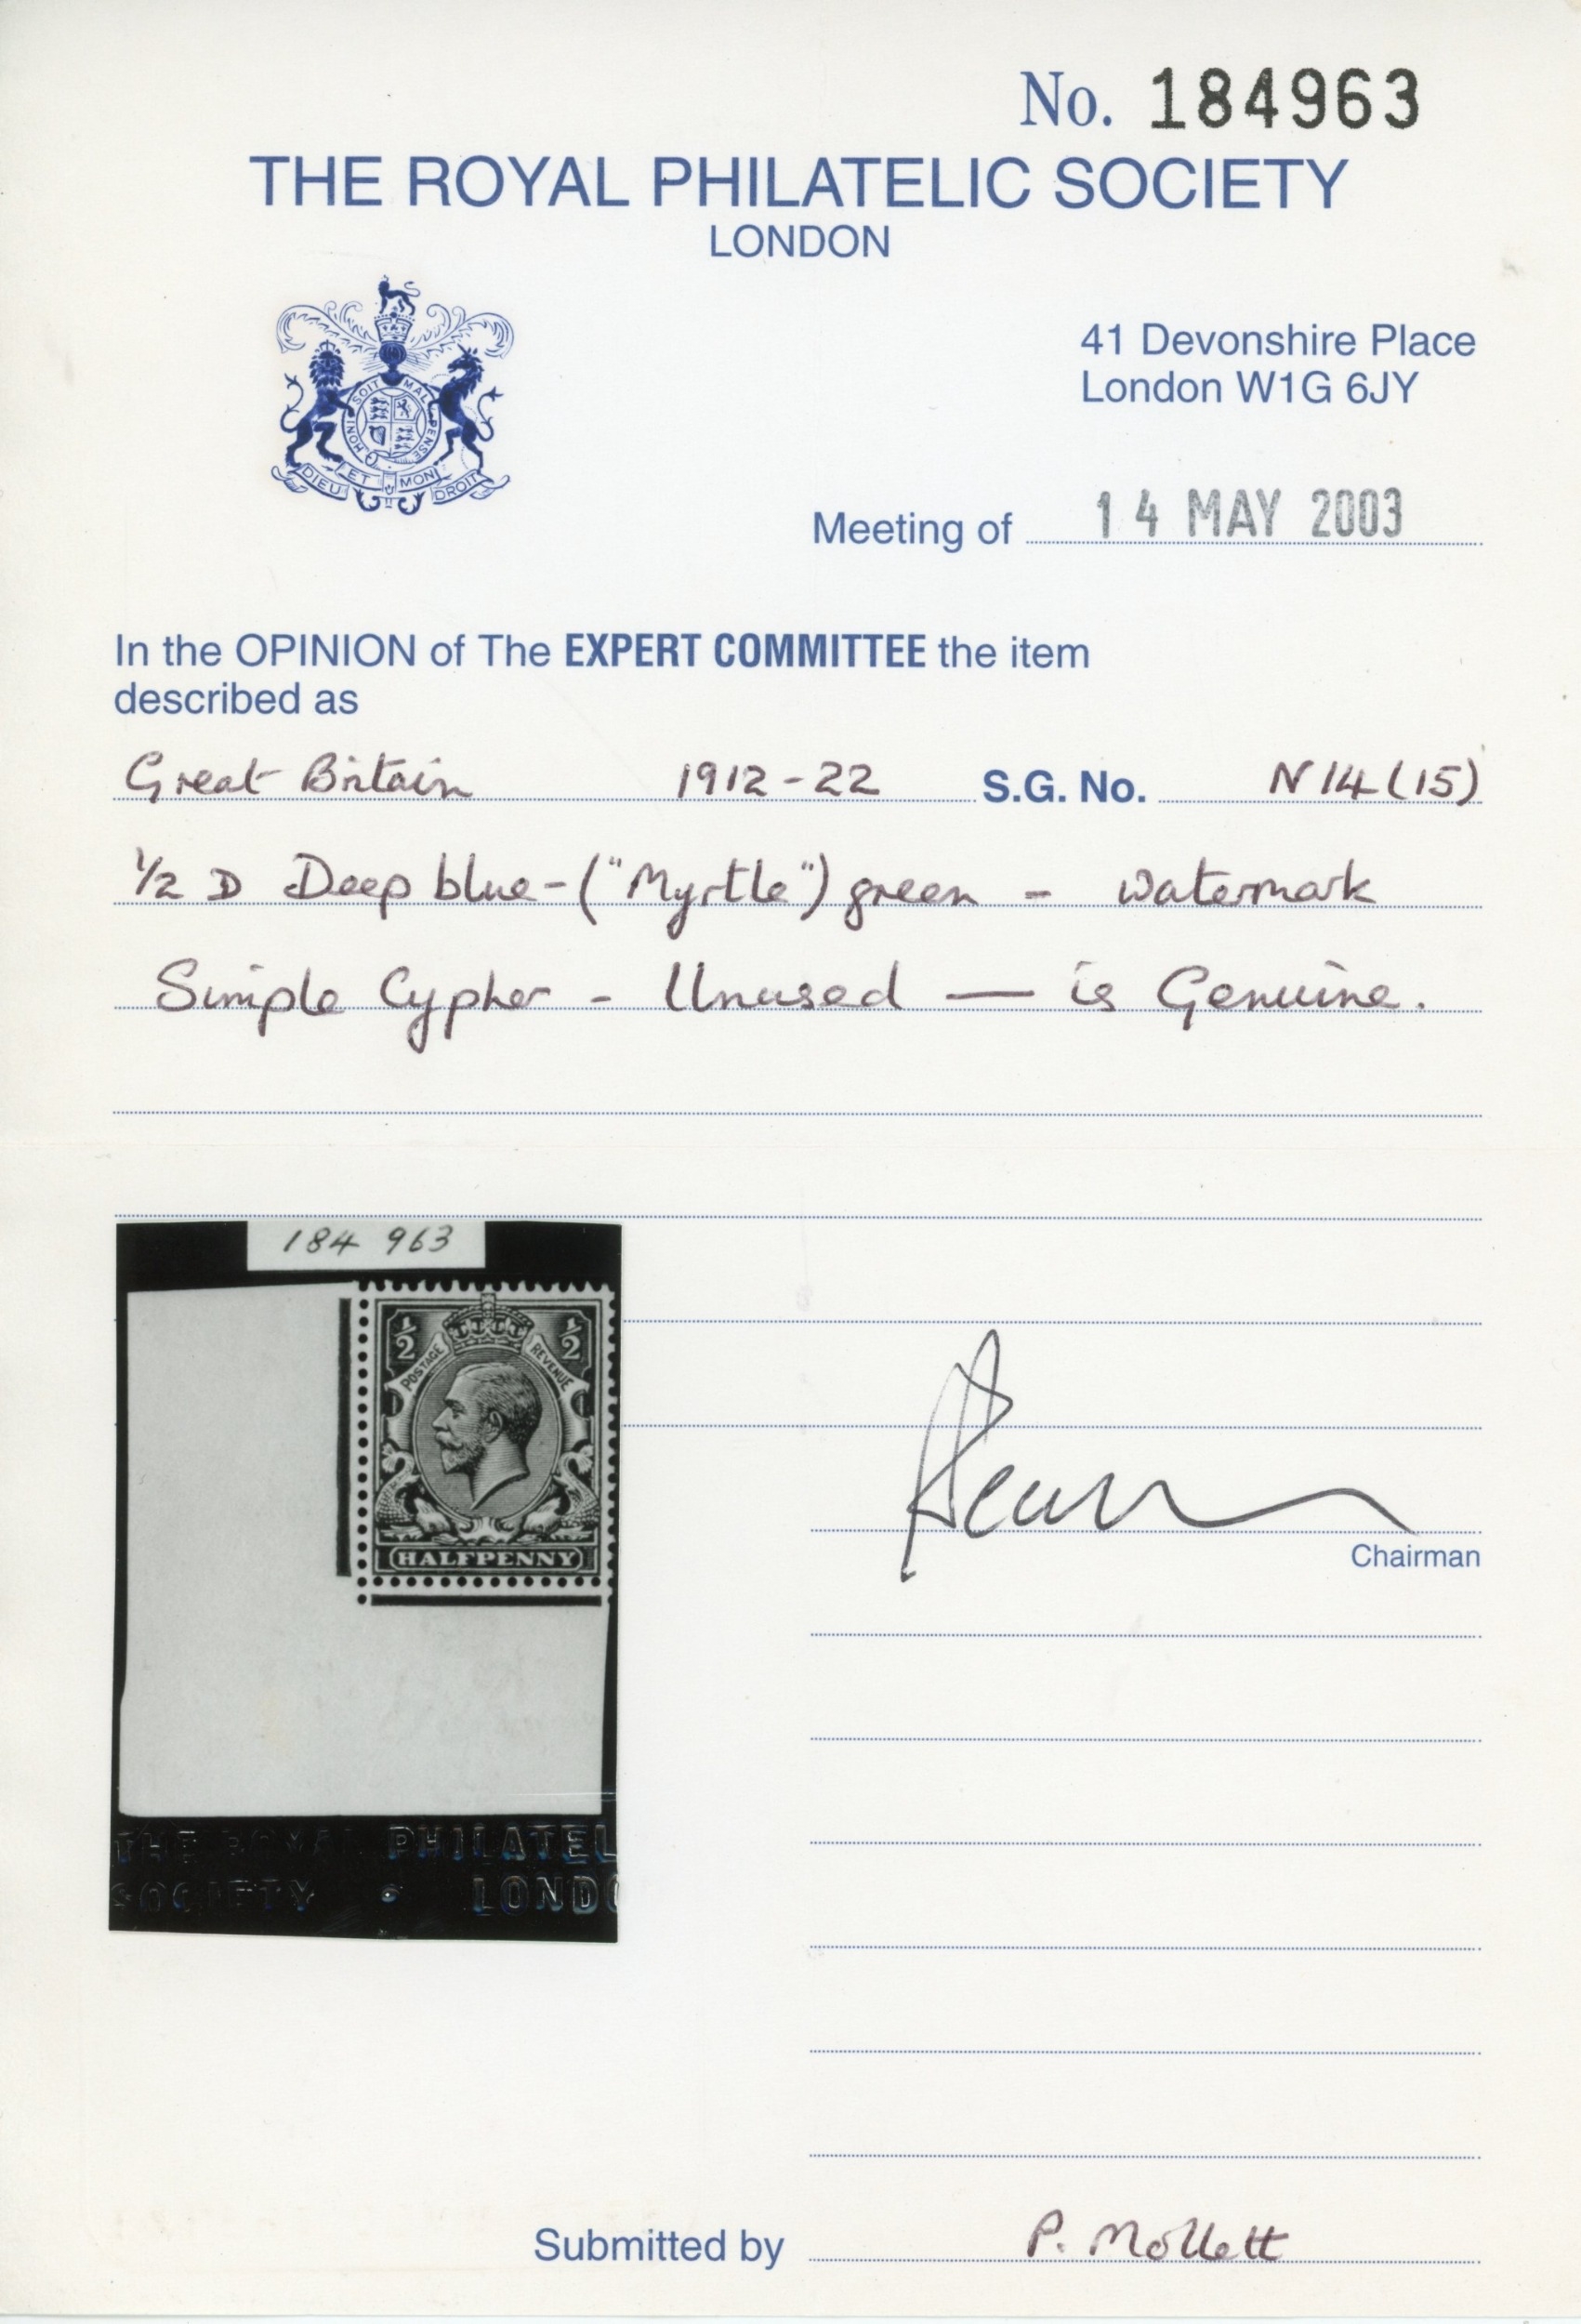 No. 184963
THE ROYAL PHILATELIC SOCIETY
LONDON
HONI SOIT MAL PENSE
DIEU ET MON DROIT
41 Devonshire Place
London W1G 6JY
Meeting of 14 MAY 2003
In the OPINION of The EXPERT COMMITTEE the item
described as
Great Britain 1912-22 S.G. No. N14(15)
1/2 D Deep blue-("Myrtle") green - watermark
Simple Cypher - Unused — is Genuine.
184 963
1/2 1/2
POSTAGE REVENUE
HALFPENNY
THE ROYAL PHILATEL
SOCIETY • LONDO
Chairman
Submitted by P. Mollett